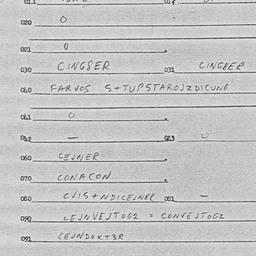 020 0
021 0
030 CINGSER 031 CINGLER
040 FARVOS S+TUPSTAROJZDICUNG
041 0
042 — 043
060 LEJNER
070 CONACON
080 081 —
090 LEJNVEJTOG2 = CONVEJTOG2
091 LEJNDOKT3R